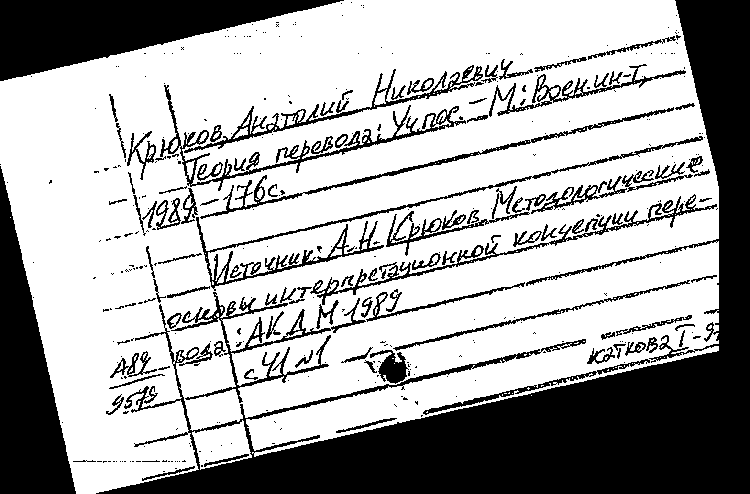 Крюков, Анатолий Николаевич
Теория перевода: Уч. пос. – М.: Воен. ин-т,
1989 – 176 с.
Источник: А.Н. Крюков Методологические
основы интерпретационной концепции пере-
вода: АКД М 1989
с 41, №1
А89
9579
Каткова I-9